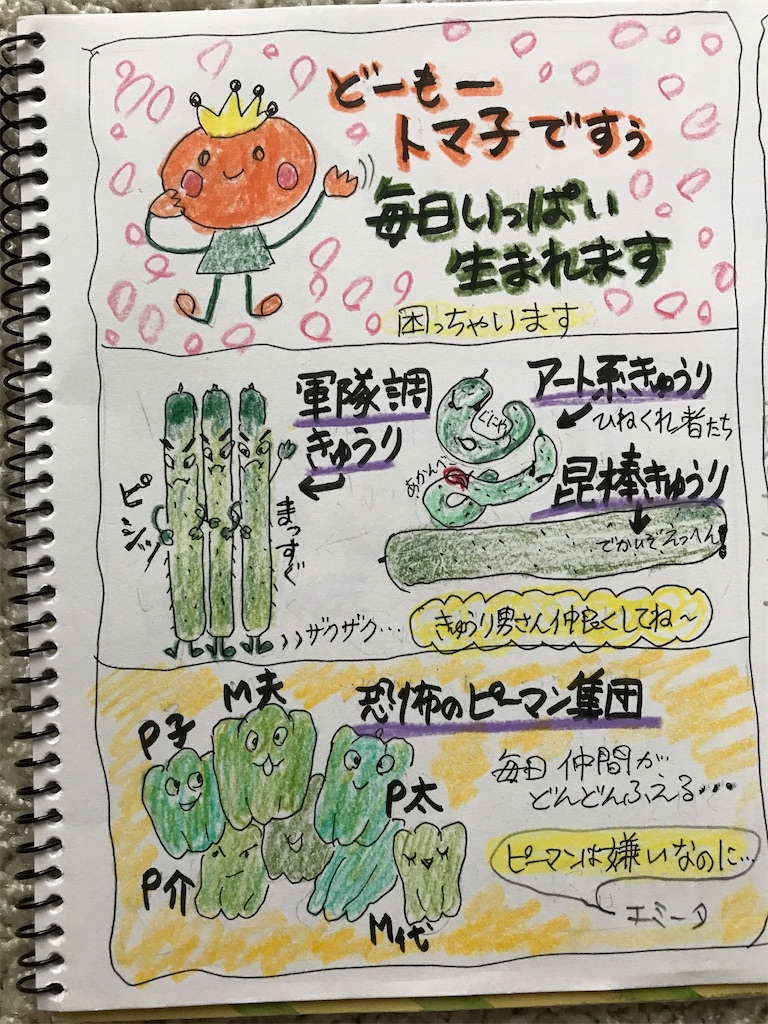 どーもー
トマ子ですぅ
毎日いっぱい
生まれます
困っちゃいます
軍隊調
きゅうり
ピシッ
まっすぐ
ザクザク…
アート系きゅうり
ひねくれ者たち
ぐにゃ
あかんべ
昆棒きゅうり
でかいぞえっへん!
きゅうり男さん仲良くしてね～
恐怖のピーマン集団
M夫
P子
P太
P介
M代
毎日仲間が
どんどんふえる…
ピーマンは嫌いなのに…
エミータ